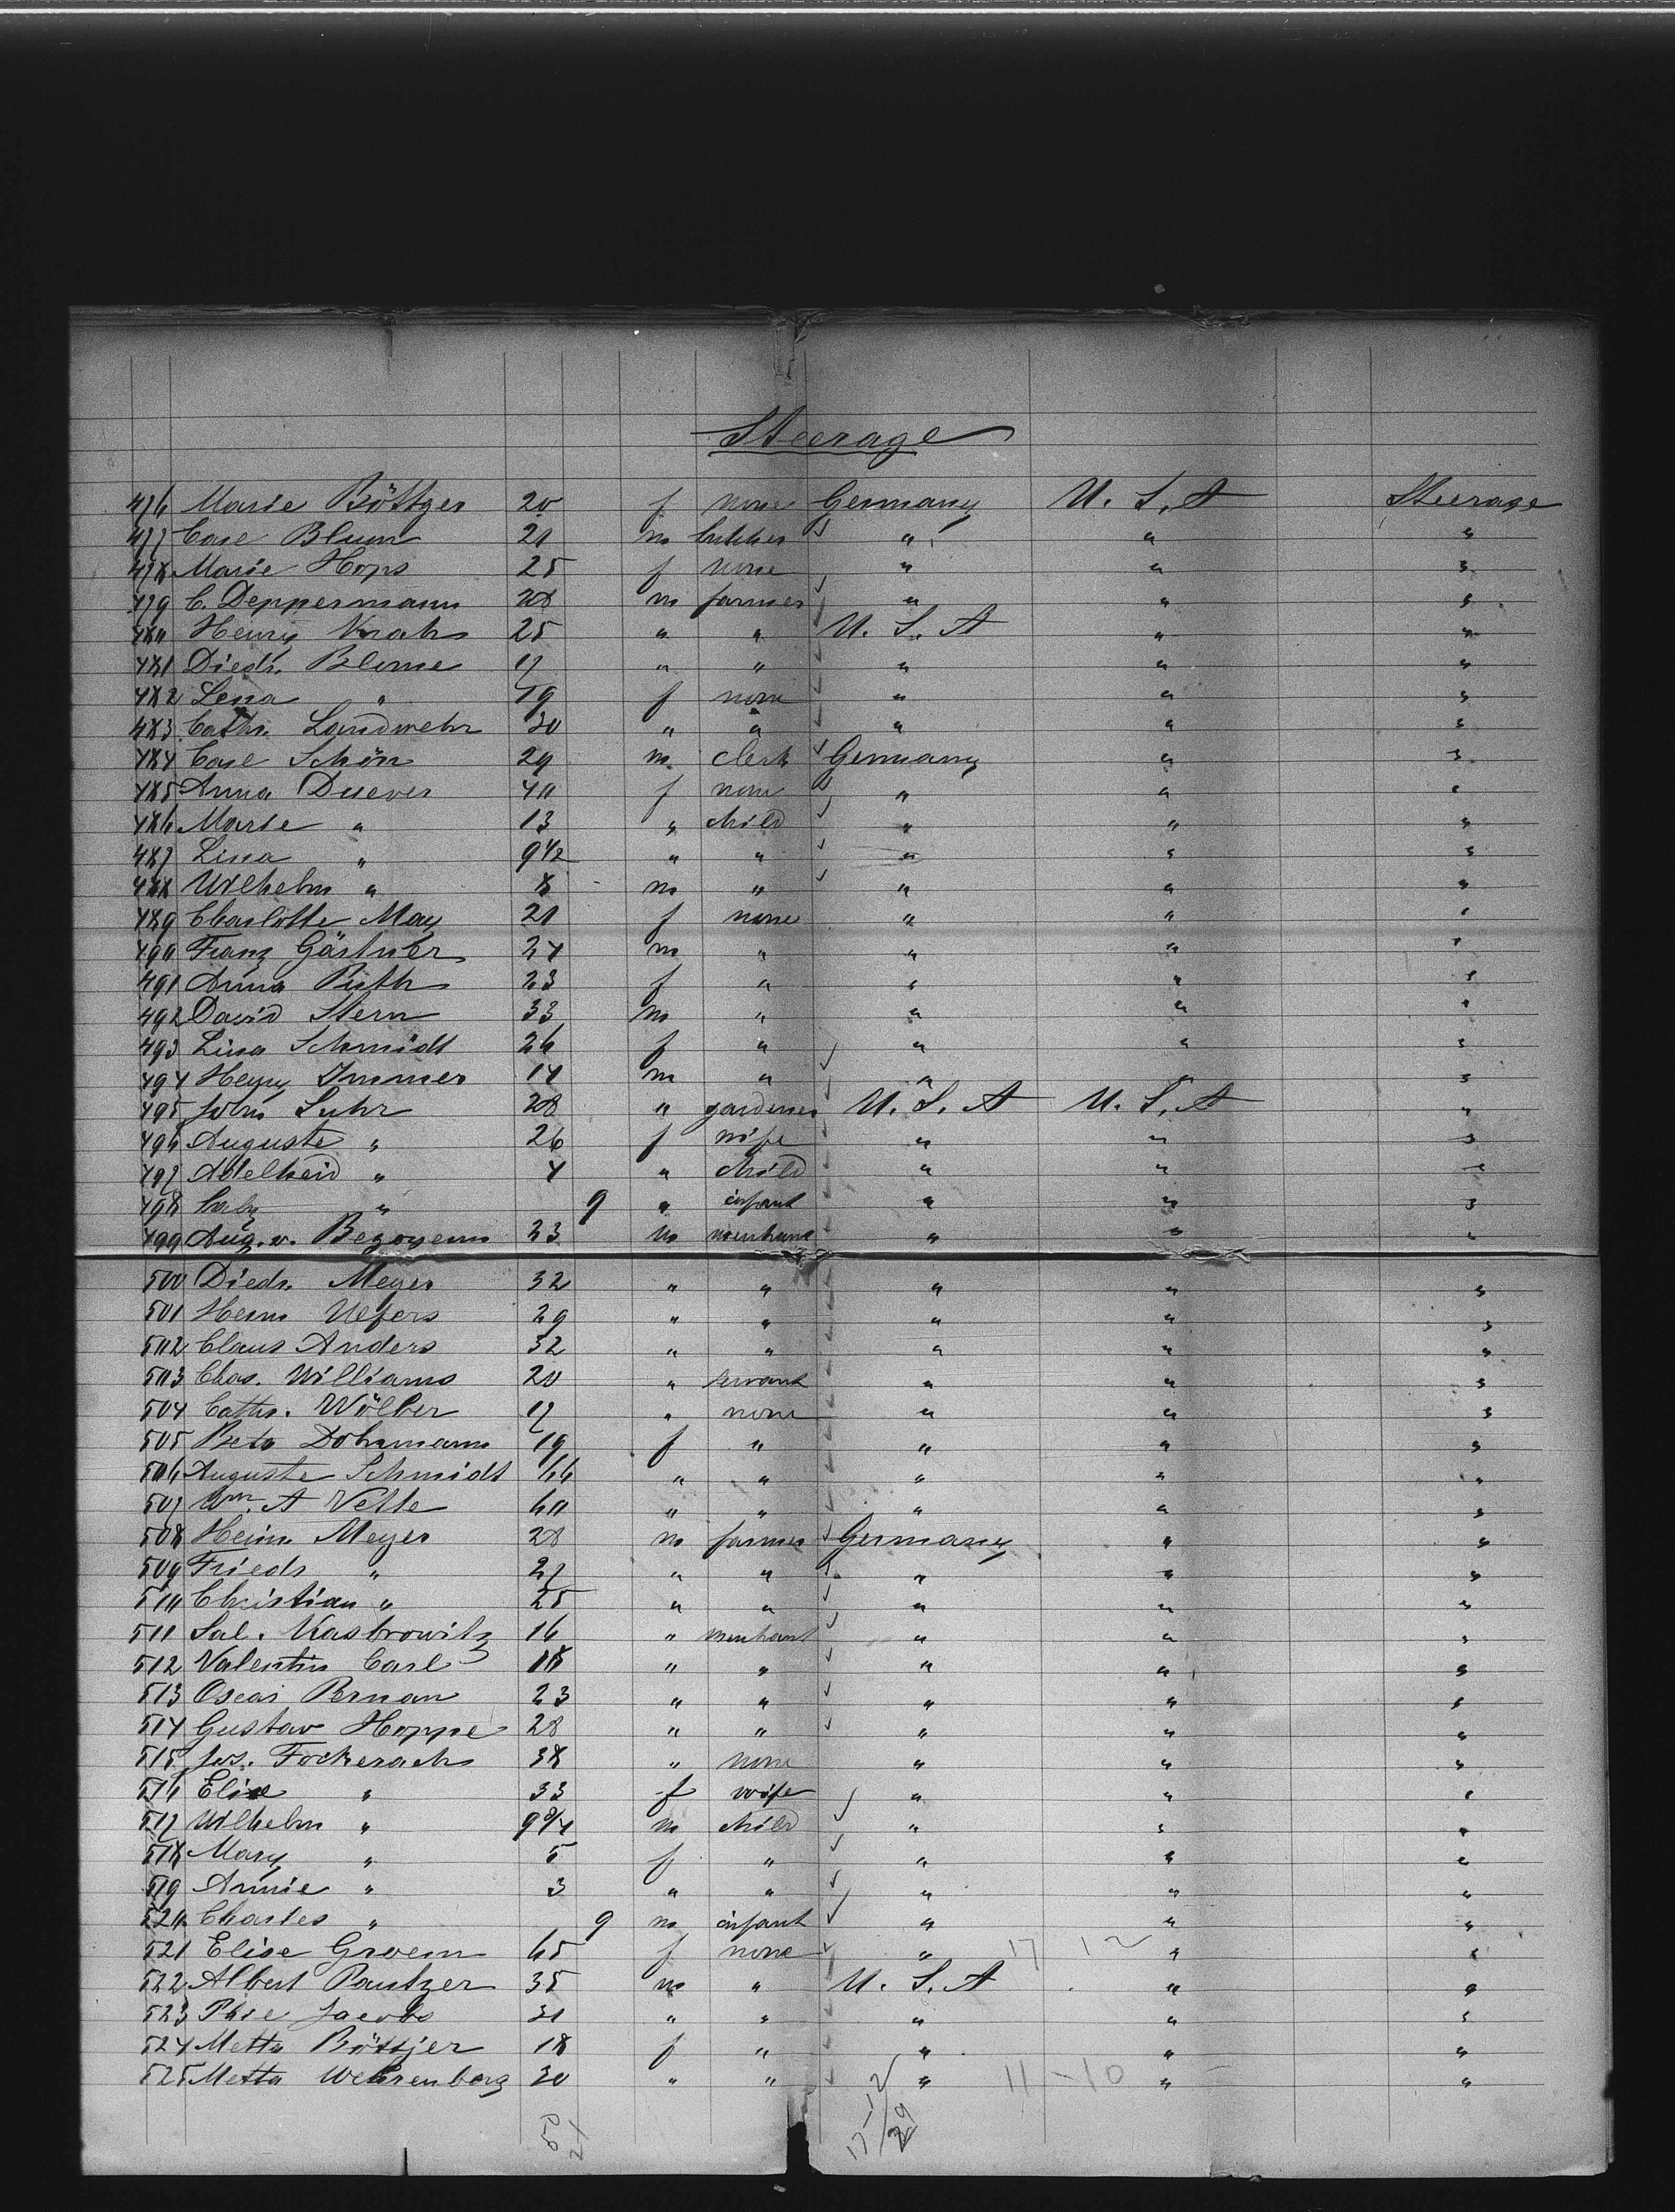 Steerage
476 Marie Böttger 20 f none Germany U. S. A Steerage
477 Carl Blum 21 m butcher " " "
478 Marie Hops 25 f none " " "
479 C. Deppermann 28 m farmer " " "
480 Henry Krah 25 " " U. S. A " "
481 Diedr. Blome 17 " " " " "
482 Lena " 19 f none " " "
483 Cathr. Landwehr 30 " " " " "
484 Carl Schön 29 m clerk Germany " "
485 Anna Duever 40 f none " " "
486 Marie " 13 " child " " "
487 Lina " 9 1/2 " " " " "
488 Wilhelm " 8 m " " " "
489 Charlotte May 21 f none " " "
490 Franz Gärtner 24 m " " " "
491 Anna Puth 23 f " " " "
492 David Stern 33 m " " " "
493 Lina Schmidt 26 f " " " "
494 Henry Immer 14 m " " " "
495 John Luhr 28 " gardener U. S. A U. S. A "
496 Auguste " 26 f wife " " "
497 Adelheid " 4 " child " " "
498 baby " 9 " infant " " "
499 Aug. v. 23 m merchant " " "
500 Diedr. Meyer 32 " " " " "
501 Herm Ulfers 29 " " " " "
502 Claus Anders 32 " " " " "
503 Chas. Williams 20 " servant " " "
504 Cathr. Wölber 17 " none " " "
505 Beta Dohrmann 19 f " " " "
506 Auguste Schmidt 66 " " " " "
507 Wm. A Velle 60 " " " " "
508 Heinr. Meyer 28 m farmer Germany " "
509 Friedr " 27 " " " " "
510 Christian " 25 " " " " "
511 Sal. Kasbrowitz 16 " merchant " " "
512 Valentin Carl 18 " " " " "
513 Oscar Pernan 23 " " " " "
514 Gustav Hoppe 28 " " " " "
515 Jos. Fockerach 38 " none " " "
516 Elise " 33 f wife " " "
517 Wilhelm " 9 3/4 m child " " "
518 Mary " 5 f " " " "
519 Annie " 3 " " " " "
520 Charles " 9 m infant " " "
521 Elise Groem 65 f none " 17 12 " "
522 Albert Pantzer 35 m " U. S. A " "
523 Phie Jacobs 31 " " " " "
524 Metta Böttjer 18 f " " " "
525 Metta Wehrenberg 30 " " " 11-10 " "
17-12
29